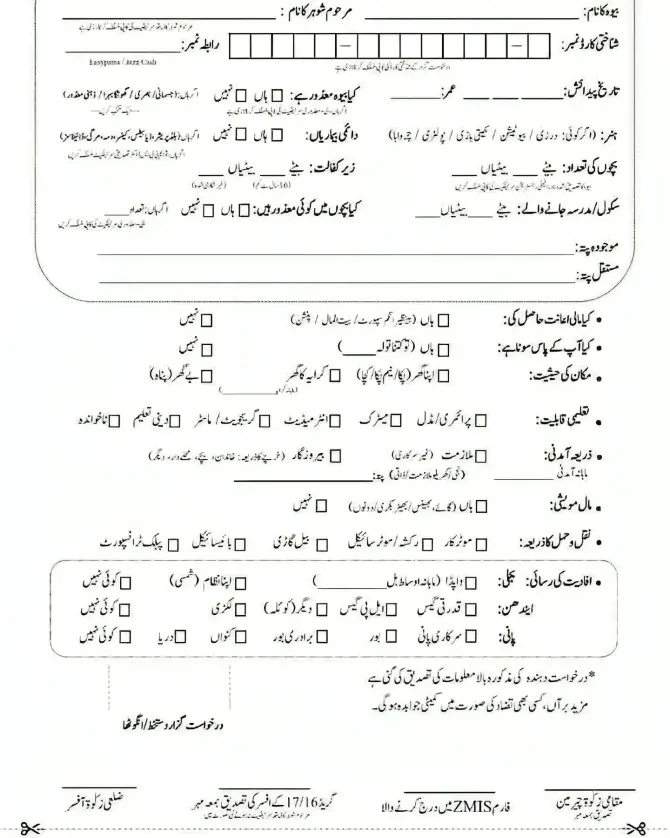 بیوہ کا نام: ____________ مرحوم شوہر کا نام: ____________
شناختی کارڈ نمبر: – – رابطہ نمبر: ________
Easypaisa / Jazz Cash
تاریخ پیدائش: ____ ____ ____ عمر: ______ کیا بیوہ معذور ہے: ☐ ہاں ☐ نہیں اگر ہاں: (جسمانی / بصری / گونگا بہرا / ذہنی معذور)
ہنر: (اگر کوئی: درزی / بیوٹیشن / کھیتی باڑی / پولٹری / چرواہا) دائمی بیماریاں: ☐ ہاں ☐ نہیں
بچوں کی تعداد: بیٹے ____ بیٹیاں ____ زیر کفالت: بیٹے ____ بیٹیاں ____
(16 سال سے کم) (غیر شادی شدہ)
سکول/مدرسہ جانے والے: بیٹے ____ بیٹیاں ____ کیا بچوں میں کوئی معذور ہیں: ☐ ہاں ☐ نہیں اگر ہاں: تعداد ____
موجودہ پتہ: ____________
مستقل پتہ: ____________
• کیا مالی اعانت حاصل کی: ☐ ہاں (بینظیر انکم سپورٹ / بیت المال / پنشن) ☐ نہیں
• کیا آپ کے پاس سونا ہے: ☐ ہاں (تو کتنا تولہ ____) ☐ نہیں
• مکان کی حیثیت: ☐ اپنا گھر (پکا/نیم پکا/کچا) ☐ کرایہ کا گھر ☐ بے گھر (پناہ)
• تعلیمی قابلیت: ☐ پرائمری/مڈل ☐ میٹرک ☐ انٹرمیڈیٹ ☐ گریجویٹ/ماسٹر ☐ دینی تعلیم ☐ ناخواندہ
• ذریعہ آمدنی: ☐ ملازمت (غیر سرکاری) ☐ بیروزگار (خرچے کا ذریعہ: خاندان، بچے، محلے دار، دیگر)
ماہانہ آمدنی ________ (نجی/گھریلو ملازمت/ذاتی) پتہ: ____________
• مال مویشی: ☐ ہاں (گائے، بھینس/بھیڑ بکری/دونوں) ☐ نہیں
• نقل و حمل کا ذریعہ: ☐ موٹر کار ☐ رکشہ/موٹر سائیکل ☐ بیل گاڑی ☐ بائیسائیکل ☐ پبلک ٹرانسپورٹ
• افادیت کی رسائی: بجلی: ☐ واپڈا (ماہانہ اوسط بل ________) ☐ اپنا نظام (شمسی) ☐ کوئی نہیں
ایندھن: ☐ قدرتی گیس ☐ ایل پی گیس ☐ دیگر (کوئلہ) ☐ لکڑی ☐ کوئی نہیں
پانی: ☐ سرکاری پانی ☐ بور ☐ برادری بور ☐ کنواں ☐ دریا ☐ کوئی نہیں
*درخواست دہندہ کی مذکورہ بالا معلومات کی تصدیق کی گئی ہے
مزید برآں، کسی بھی تضاد کی صورت میں کمیٹی جوابدہ ہوگی۔
درخواست گزار دستخط/انگوٹھا
مقامی زکوٰۃ چیئرمین فارم ZMIS میں درج کرنے والا گریڈ 17/16 کے افسر کی تصدیق بمعہ مہر ضلعی زکوٰۃ آفسر
تصدیق بمعہ مہر